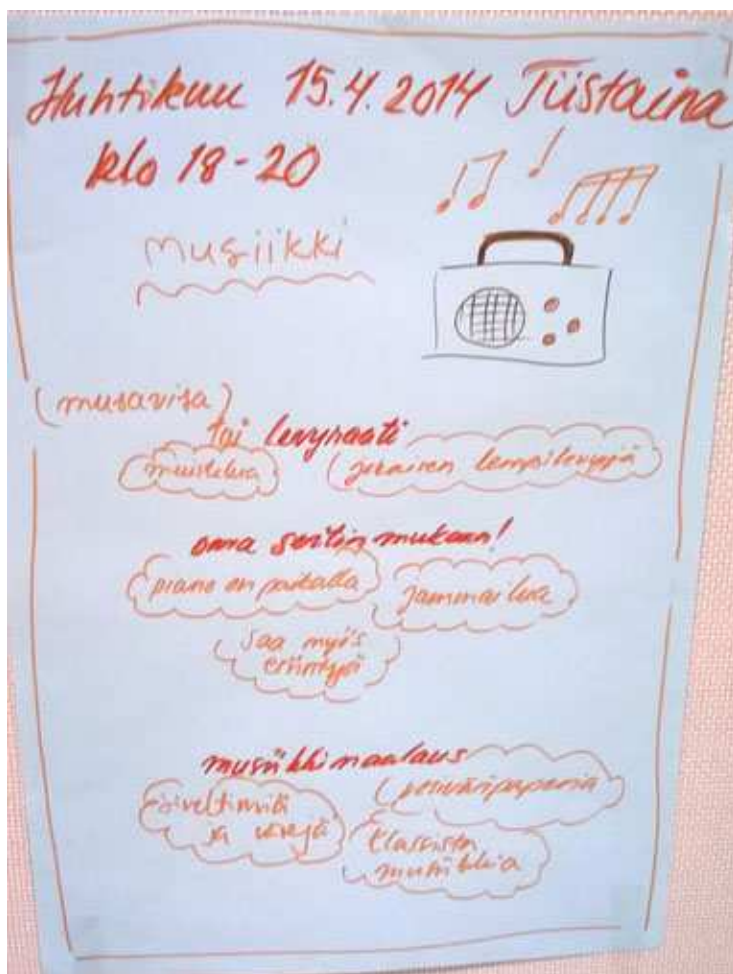 Huhtikuu 15.4.2014 Tiistaina
klo 18-20
musiikki
(musavisa)
tai levyraati
muistelua
jokaisen lempilevyjä
oma soitin mukaan!
piano on paikalla
jammailua
saa myös
esiintyä
musiikkimaalaus
siveltimillä
ja värejä
vesiväripaperia
klassista
musiikkia